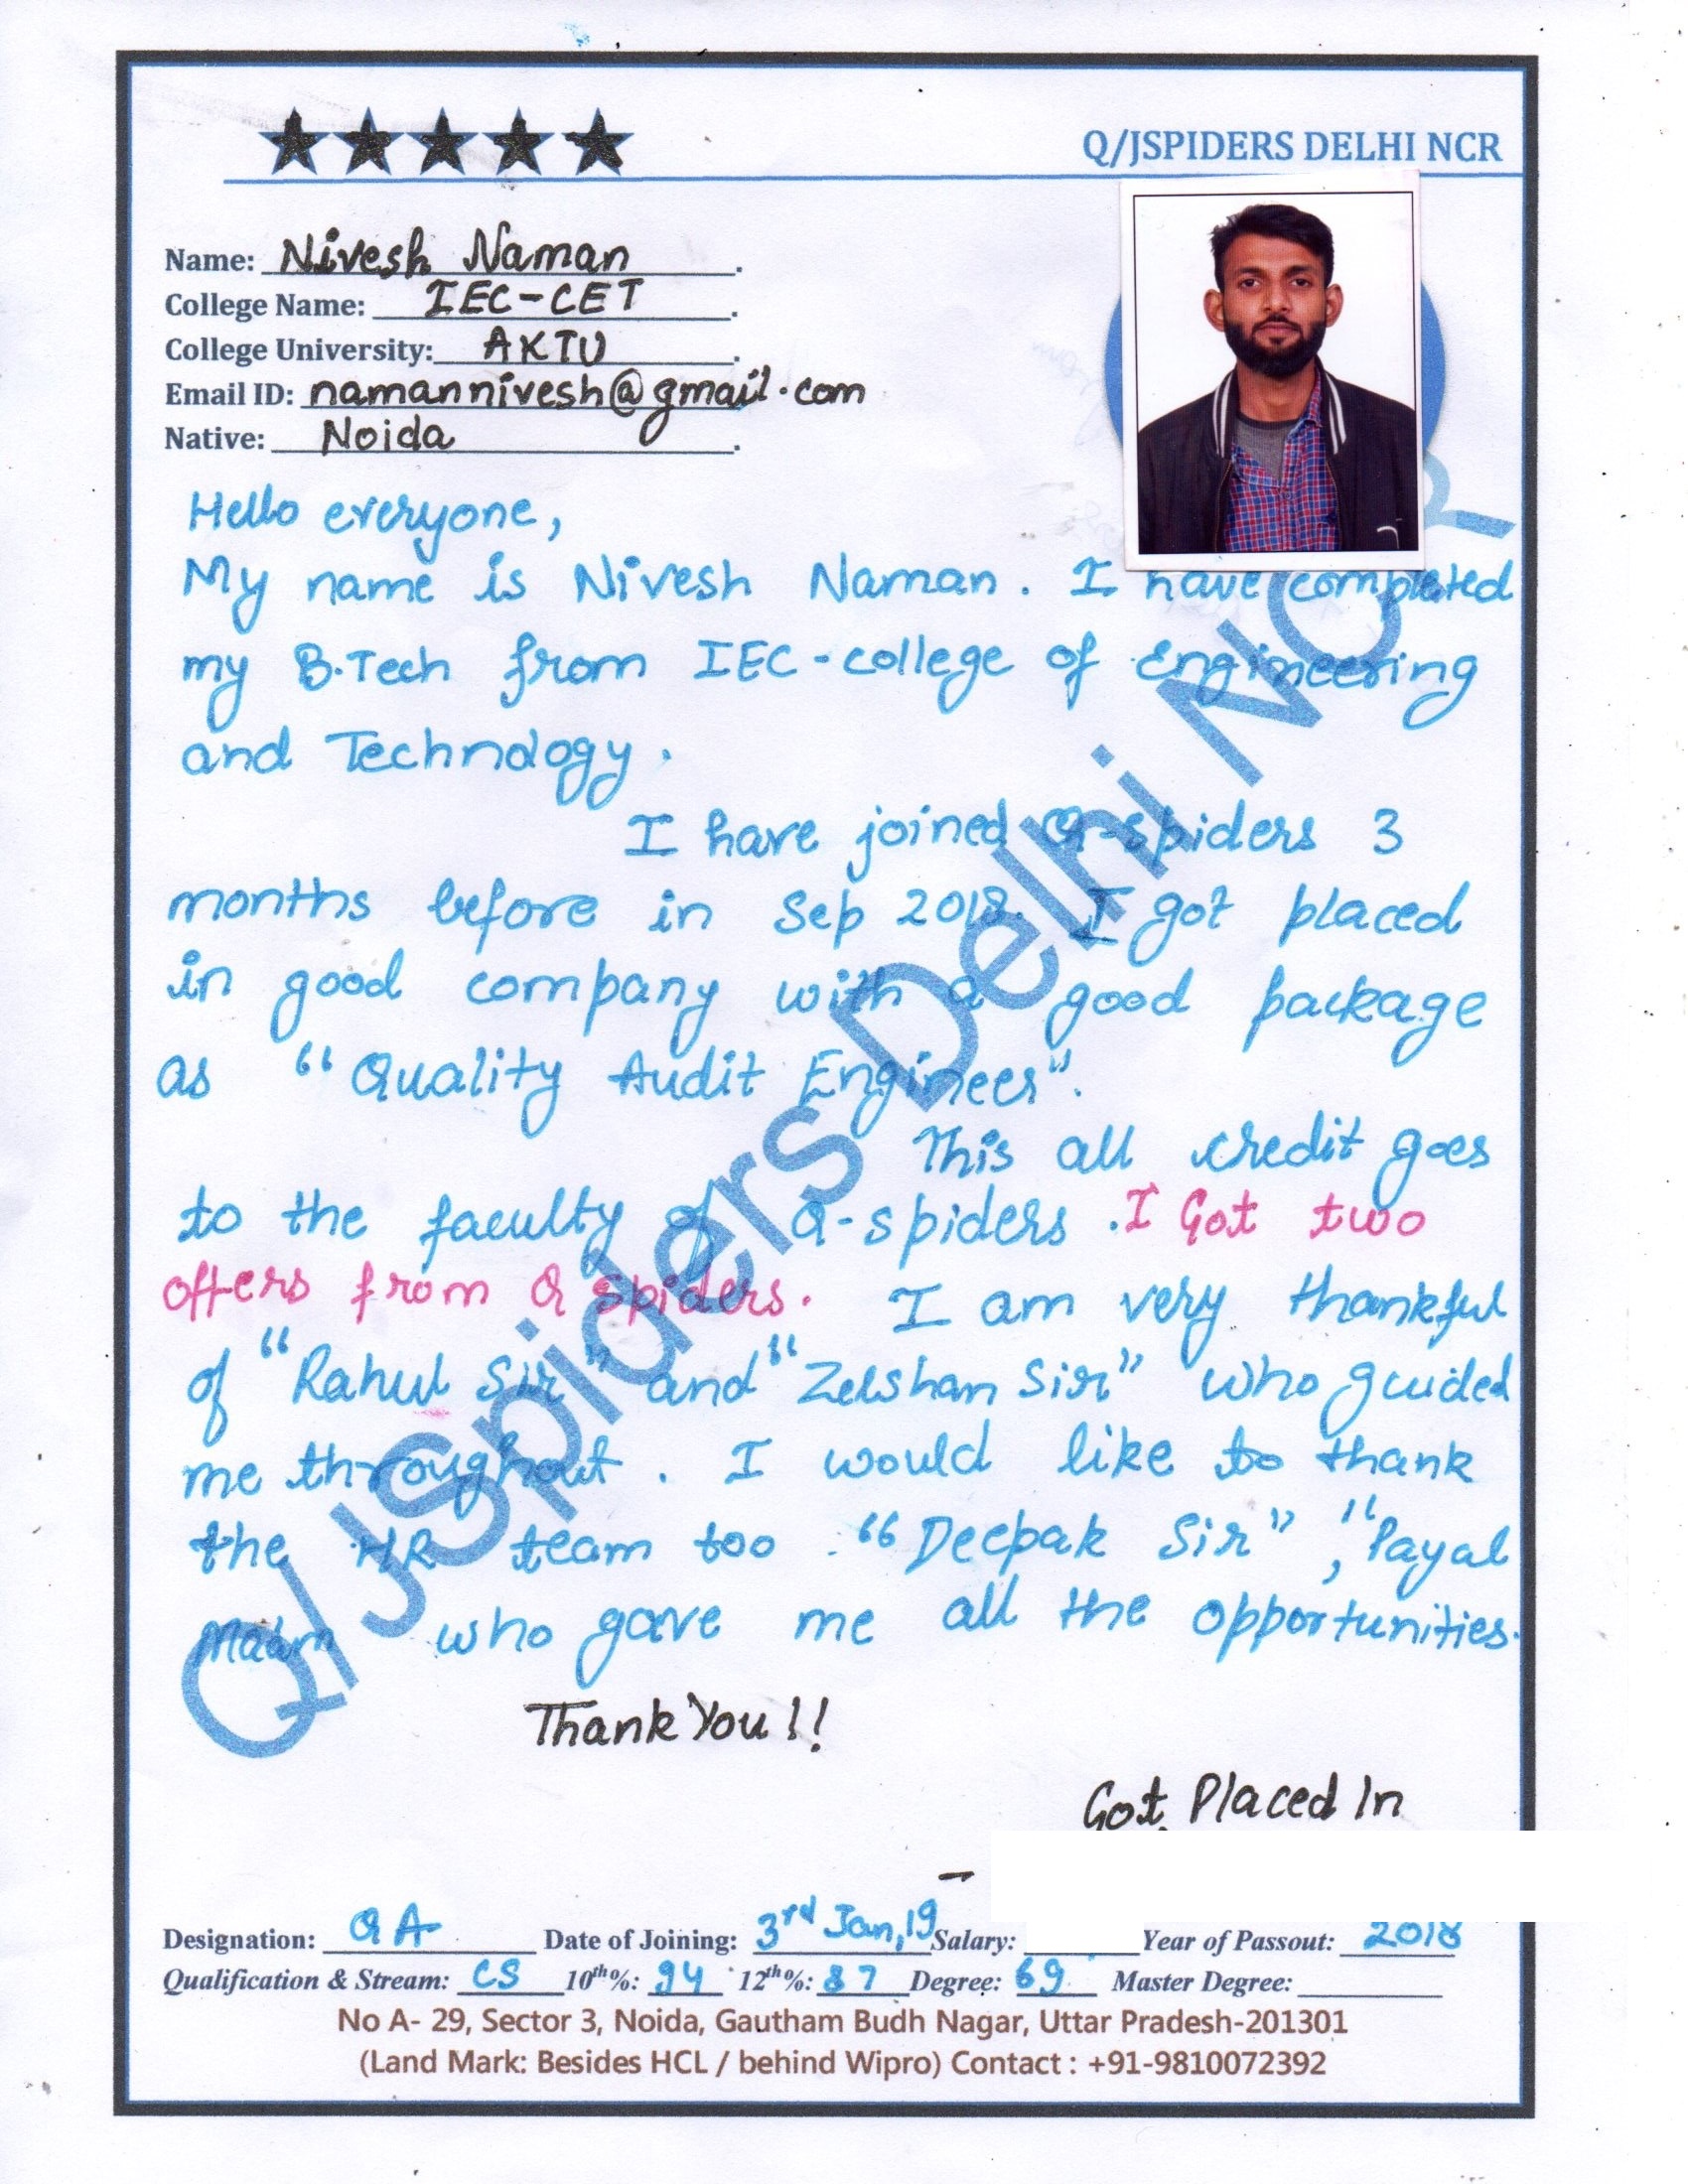 Q/JSPIDERS DELHI NCR
Name: Nivesh Naman.
College Name: IEC-CET.
College University: AKTU.
Email ID: namannivesh@gmail.com
Native: Noida.
Hello everyone,
My name is Nivesh Naman. I have completed
my B.Tech from IEC-college of Engineering
and Technology.
I have joined Q-spiders 3
months before in Sep 2018. I got placed
in good company with a good package
as "Quality Audit Engineer".
This all credit goes
to the faculty of Q-spiders. I Got two
offers from Q Spiders. I am very thankful
of "Rahul Sir" and "Zeishan Sir" who guided
me throughout. I would like to thank
the HR team too. "Deepak Sir", "Payal
Ma'am who gave me all the opportunities.
Thank You!!
Got Placed In
Designation: QA Date of Joining: 3rd Jan,19 Salary: Year of Passout: 2018
Qualification & Stream: CS 10th%: 94 12th%: 87 Degree: 69 Master Degree:
No A- 29, Sector 3, Noida, Gautham Budh Nagar, Uttar Pradesh-201301
(Land Mark: Besides HCL / behind Wipro) Contact : +91-9810072392
Q/JSpiders Delhi NCR